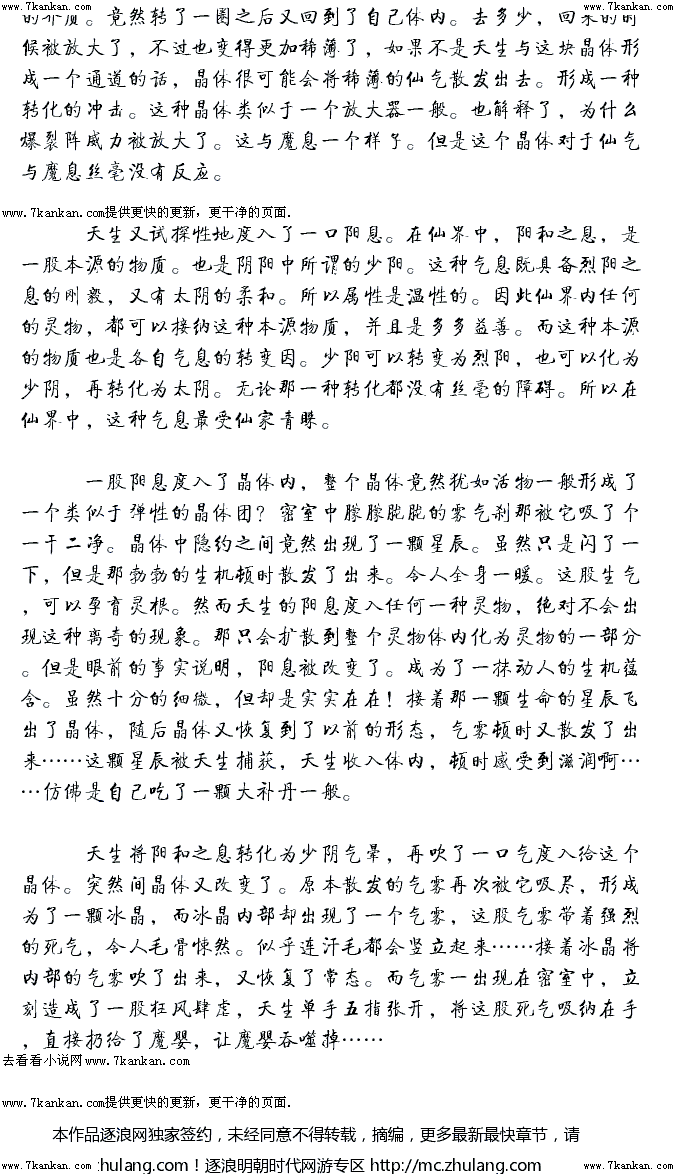 www.7kankan.com www.7kankan.com
的介质。竟然转了一圈之后又回到了自己体内。去多少，回来的时
候被放大了，不过也变得更加稀薄了，如果不是天生与这块晶体形
成一个通道的话，晶体很可能会将稀薄的仙气散发出去。形成一种
转化的冲击。这种晶体类似于一个放大器一般。也解释了，为什么
爆裂阵威力被放大了。这与魔息一个样子。但是这个晶体对于仙气
与魔息丝毫没有反应。
www.7kankan.com提供更快的更新，更干净的页面.
天生又试探性地度入了一口阳息。在仙界中，阳和之息，是
一股本源的物质。也是阴阳中所谓的少阳。这种气息既具备烈阳之
息的刚毅，又有太阴的柔和。所以属性是温性的。因此仙界内任何
的灵物，都可以接纳这种本源物质，并且是多多益善。而这种本源
的物质也是各自气息的转变因。少阳可以转变为烈阳，也可以化为
少阴，再转化为太阴。无论那一种转化都没有丝毫的障碍。所以在
仙界中，这种气息最受仙家青睐。
一股阳息度入了晶体内，整个晶体竟然犹如活物一般形成了
一个类似于弹性的晶体团？密室中朦朦胧胧的雾气刹那被它吸了个
一干二净。晶体中隐约之间竟然出现了一颗星辰。虽然只是闪了一
下，但是那勃勃的生机顿时散发了出来。令人全身一暖。这股生气
，可以孕育灵根。然而天生的阳息度入任何一种灵物，绝对不会出
现这种离奇的现象。那只会扩散到整个灵物体内化为灵物的一部分
。但是眼前的事实说明，阳息被改变了。成为了一抹动人的生机蕴
含。虽然十分的细微，但却是实实在在！接着那一颗生命的星辰飞
出了晶体，随后晶体又恢复到了以前的形态，气雾顿时又散发了出
来……这颗星辰被天生捕获，天生收入体内，顿时感受到滋润啊…
…仿佛是自己吃了一颗大补丹一般。
天生将阳和之息转化为少阴气晕，再吹了一口气度入给这个
晶体。突然间晶体又改变了。原本散发的气雾再次被它吸尽，形成
为了一颗冰晶，而冰晶内部却出现了一个气雾，这股气雾带着强烈
的死气，令人毛骨悚然。似乎连汗毛都会竖立起来……接着冰晶将
内部的气雾吹了出来，又恢复了常态。而气雾一出现在密室中，立
刻造成了一股狂风肆虐，天生单手五指张开，将这股死气吸纳在手
，直接扔给了魔婴，让魔婴吞噬掉……
去看看小说网www.7kankan.com
www.7kankan.com提供更快的更新，更干净的页面.
本作品逐浪网独家签约，未经同意不得转载，摘编，更多最新最快章节，请
www.7kankan.com zhulang.com！逐浪明朝时代网游专区 http://mc.zhulang.com www.7kankan.com